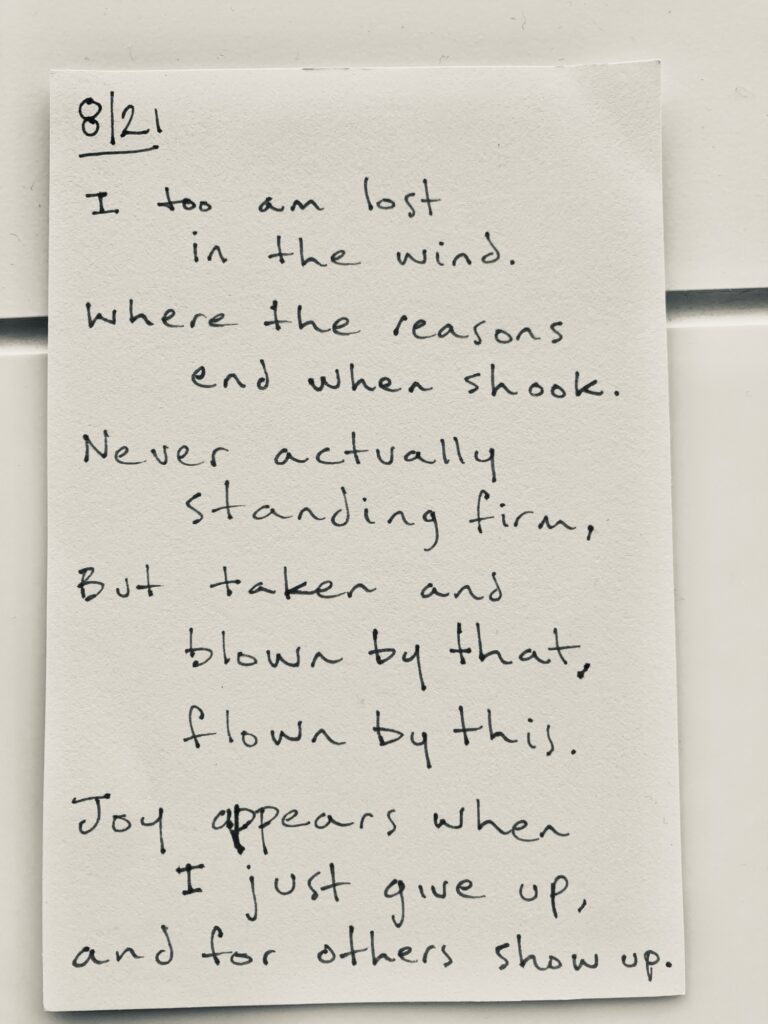 8/21
I too am lost
in the wind.
Where the reasons
end when shook.
Never actually
standing firm,
But taken and
blown by that,
flown by this.
Joy appears when
I just give up,
and for others show up.